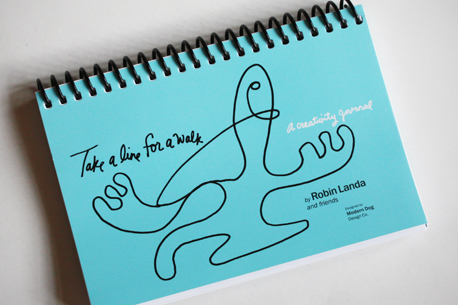 Take a line for a walk
a creativity journal
by Robin Landa
and friends
Designed by
Modern Dog
Design Co.